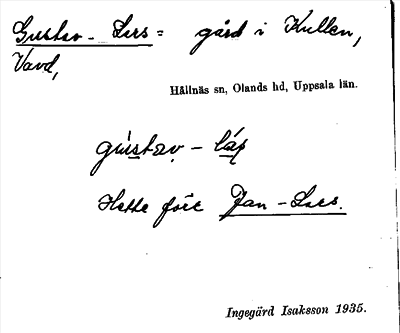 Gustav-Lars = gård i Kullen,
Vavd,
Hållnäs sn, Olands hd, Uppsala län.
gústav - láʂ
Hette förr Jan-Lars.
Ingegärd Isaksson 1935.